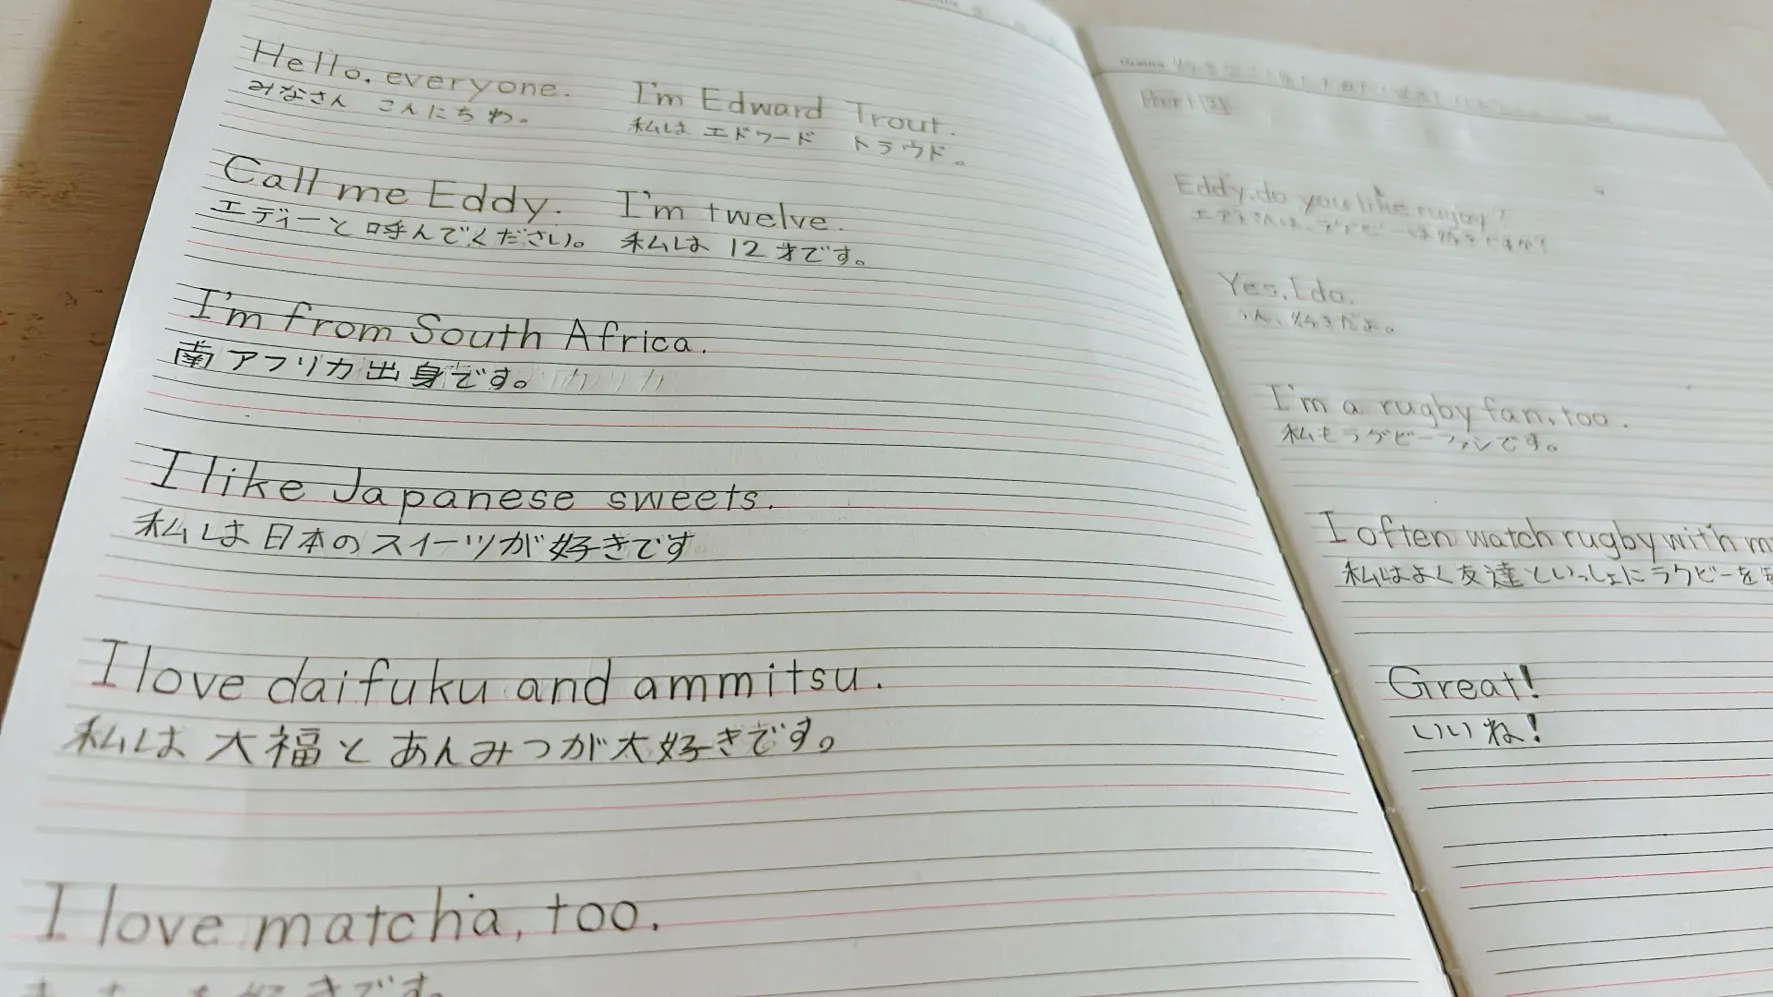 Hello, everyone. I'm Edward Trout.
みなさん こんにちわ。 私は エドワード トラウド。
Call me Eddy. I'm twelve.
エディーと呼んでください。 私は 12才です。
I'm from South Africa.
南アフリカ出身です。
I like Japanese sweets.
私は日本のスイーツが好きです
I love daifuku and ammitsu.
私は 大福と あんみつが大好きです。
I love matcha, too.
好きです。
Part
Eddy, do you like rugby?
Yes, I do.
うん、好きだよ。
I'm a rugby fan, too.
私もラグビーファンです。
I often watch rugby with m
私はよく友達といっしょにラグビーを
Great!
いいね!